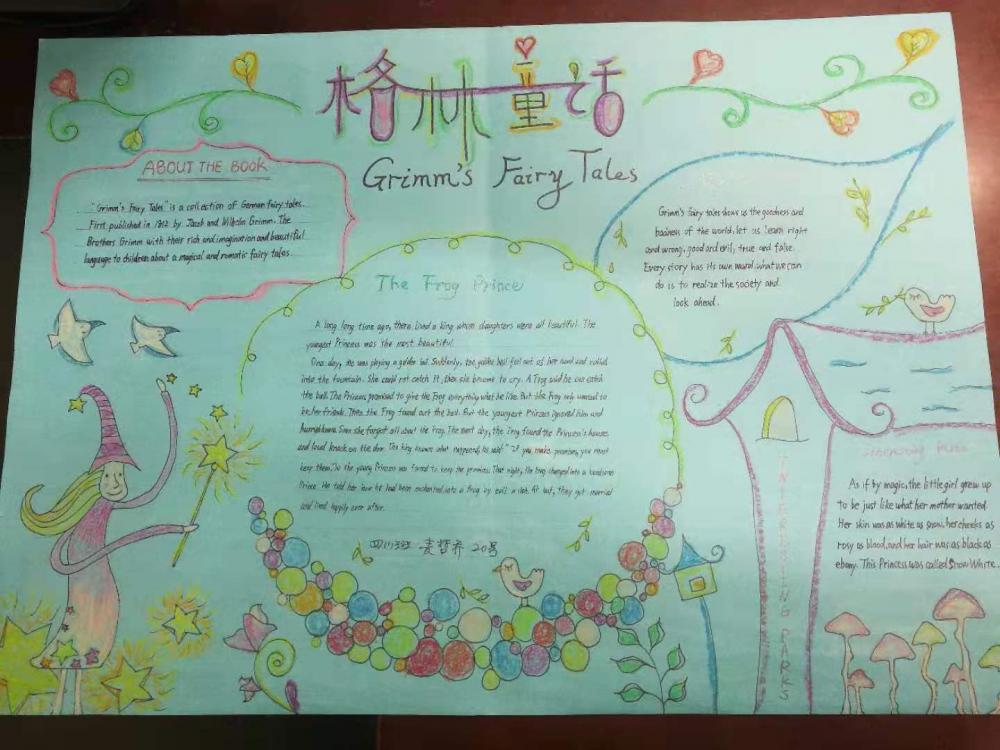 格林童话
Grimm's Fairy Tales
ABOUT THE BOOK
"Grimm's Fairy Tales" is a collection of German fairy tales.
First published in 1812 by Jacob and Wilhelm Grimm. The
Brothers Grimm with their rich and imagination and beautiful
language to children about a magical and romatic fairy tales.
Grimm's fairy tales shows us the goodness and
badness of the world, let us learn right
and wrong, good and evil, true and false.
Every story has its own moral, what we can
do is to realize the society and
look ahead.
The Frog Prince
A long long time ago, there lived a king whose daughters were all beautiful. The
youngest Princess was the most beautiful.
One day, she was playing a golden ball. Suddenly, the golden ball fell out of her hand and rolled
into the fountain. She could not catch it, then she became to cry. A Frog said he can catch
the ball. The Princess promised to give the Frog everything what he like. But the Frog only wanted to
be her friends. Then the Frog found out the ball. But the youngest Princess ignored him and
Soon she forgot all about the frog. The next day, the frog found the Princess's houses
and loud knock on the door. The king knows what happened, he said "If you make promises, you must
keep them." So the young Princess was forced to keep the promises. That night, the frog changed into a handsome
Prince. He told her how he had been enchanted into a frog by evil a witch. At last, they got married
and lived happily ever after.
20号
INTERESTING PARKS
As if by magic, the little girl grew up
to be just like what her mother wanted.
Her skin was as white as snow, her cheeks as
rosy as blood, and her hair was as black as
ebony. This Princess was called Snow White.